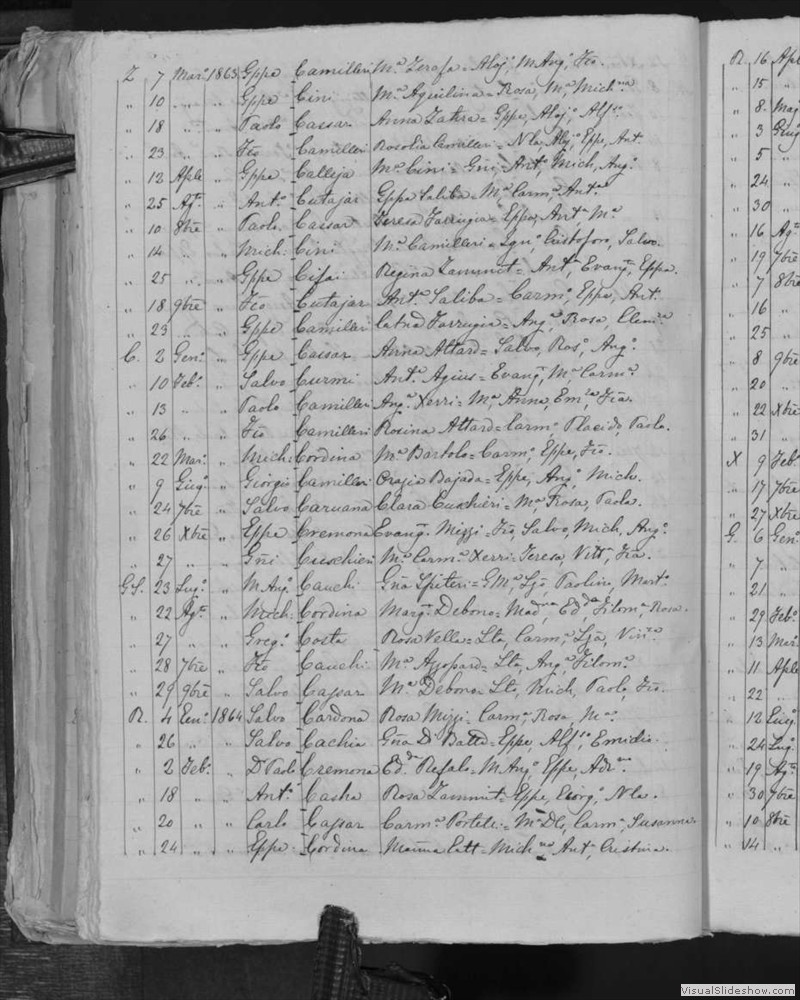 Z 7 Mar: 1863 Gppe Camilleri Mª Teresa = Aloj, M Angˢ, Fco.
" 10 " " Gppe Cini Mª Aquilina = Rosa, Mª Michⁿᵃ
" 18 " " Paolo Cassar Anna Zahra = Gppe, Alojˢ, Alfˢᵒ.
" 23 " " Fco Camilleri Rosolia Camilleri = Nla, Aloj, Eppe, Ant.
" 12 Aple " Gppe Calleja Mª Cini = Gñi, Antˢ, Mich, Angˢ
" 25 Agᵗᵒ " Antº Cutajar Gppa Saliba = Mª Carmˢ, Antⁿᵃ
" 10 8bre " Paolo Cassar Teresa Farrugia = Eppe, Antª Mª
" 14 " " Mich: Cini Mª Camilleri = Cristoforo, Salvo.
" 25 " " Gppe Cifai Regina Zammit = Antª, Evangᵗᵃ, Eppa.
" 18 9bre " Fco Cutajar Antª Saliba = Carmˢ, Eppa, Ant.
" 23 " " Gppe Camilleri Catna Farrugia = Angˢ, Rosa, Clemᵉᵃ
C. 2 Genº " Gppe Cassar Anna Attard = Salvo, Rosˢ, Angˢ.
" 10 Febº " Salvo Curmi Antª Agius = Evangᵗ, Mª Carmˢ.
" 13 " " Paolo Camilleri Angª Xerri = Mª Anna, Emˡᵃ, Fca.
" 26 " " Fco Camilleri Rosina Attard = Carmˢ, Placido, Paolo.
" 22 Mar: " Mich: Cordina Mª Bartolo = Carmˢ, Eppe, Fco.
" 9 Giugº " Giorgio Camilleri Orazia Bajada = Eppe, Angˢ, Mich.
" 24 7bre " Salvo Caruana Clara Cuschieri = Mª, Rosa, Paola.
" 26 Xbre " Eppe Cremona Evangᵗ Mizzi = Fco, Salvo, Mich, Angˢ.
" 27 " " Gñi Cuschieri Mª Carmª Xerri = Teresa, Vittª, Fca.
GS. 23 Lugº " M Angˢ Cauchi Gña Spiteri = G Mª, Lja, Paolina, Martª
" 22 Agᵗᵒ " Mich: Cordina Margᵗ Debono = Madⁿᵃ, Edᵈᵃ, Filomª, Rosa.
" 27 " " Gregº Costa Rosa Vella = Lta, Carmˢ, Lja, Vinˢᵃ.
" 28 7bre " Fco Cauchi Mª Agopard = Lta, Angˢ, Filomª.
" 29 9bre " Salvo Cassar Mª Debono = Lta, Mich, Paolo, Fco.
R. 4 Enº 1864 Salvo Cardona Rosa Mizzi = Carmª, Rosa, Mª.
" 26 " " Salvo Cachia Gña Di Batta = Eppe, Alfˢᵒ, Emidio.
" 2 Febº " D Paolo Cremona Edᵈᵃ Refalo = M Angˢ, Eppe, Adrⁿᵃ.
" 18 " " Antº Casha Rosa Zammit = Eppe, Giorgˢ, Nla.
" 20 " " Carlo Cassar Carmª Portelli = Mª Dls, Carmˢ, Susanna.
" 24 " " Eppe Cordina Marina Catt = Michⁿᵃ, Antª, Cristina.
R. 16 Aple
" 15 "
" 8 Mag
" 3 Giugº
" 5 "
" 24 "
" 30 "
" 16 Agᵗᵒ
" 19 7bre
" 7 8bre
" 16 "
" 25 "
" 8 9bre
" 20 "
" 22 Xbre
" 31 "
X 9 Febº
" 17 7bre
" 27 Xbre
G. 6 Genº
" 7 "
" 21 "
" 29 Febº
" 13 Mar:
" 11 Aple
" 22 "
" 12 Giugº
" 24 Lugº
" 19 Agᵗᵒ
" 30 7bre
" 10 8bre
" 14 "
VisualSlideshow.com